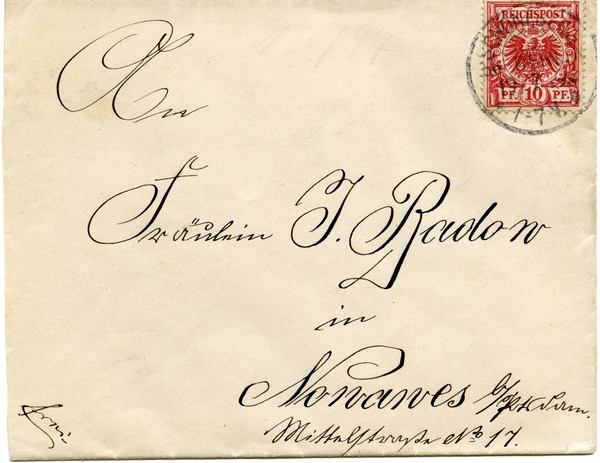 REICHSPOST
PF. 10 PF.
An
Fräulein J. Radow
in
Nowawes b/Potsdam.
Mittelstraße No 17.
frei